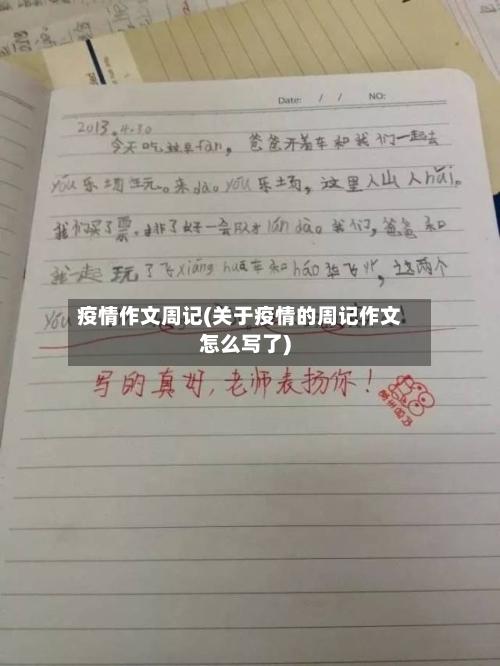 Date: / / NO:
2013.4.30
今天吃过早fàn，爸爸开着车和我们一起去
yóu乐场玩。来dào yóu乐场，这里人山人hǎi。
我们买了票。排了好一会队才lún dào 我们，爸爸和
我一起玩了飞xiáng huá车和háo华飞
这两个
yóu
疫情作文周记(关于疫情的周记作文
怎么写了)
写的真好，老师表扬你！